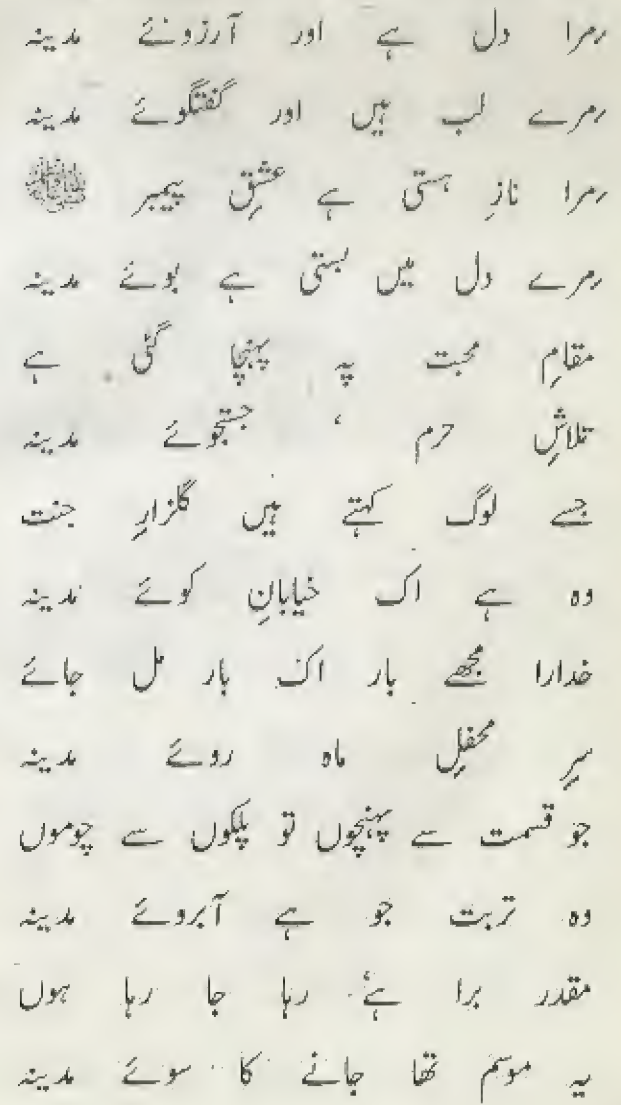 مرا دل ہے اور آرزوئے مدینہ
مرے لب ہیں اور گفتگوئے مدینہ
مرا نازِ ہستی ہے عشقِ پیمبر ﷺ
مرے دل میں بستی ہے بوئے مدینہ
مقامِ محبت پہ پہنچا گئی ہے
تلاشِ حرم ، جستجوئے مدینہ
جسے لوگ کہتے ہیں گلزارِ جنت
وہ ہے اک خیابانِ کوئے مدینہ
خدارا مجھے بار اک بار مل جائے
سرِ محفلِ ماہ روئے مدینہ
جو قسمت سے پہنچوں تو پلکوں سے چوموں
وہ تربت جو ہے آبروئے مدینہ
مقدر برا ہے، رہا جا رہا ہوں
یہ موسم تھا جانے کا سوئے مدینہ